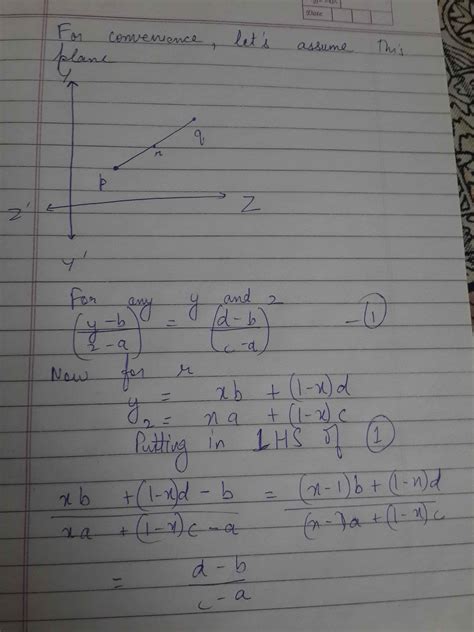 Date
For convenience, let's assume This
plane
Y
q
r
p
Z' Z
Y'
For any y and z
(y-b / z-a) = (d-b / c-a) - ①
Now for r
y = xb + (1-x)d
z = xa + (1-x)c
Putting in LHS of ①
xb + (1-x)d - b / xa + (1-x)c - a = (x-1)b + (1-x)d / (x-1)a + (1-x)c
= d-b / c-a